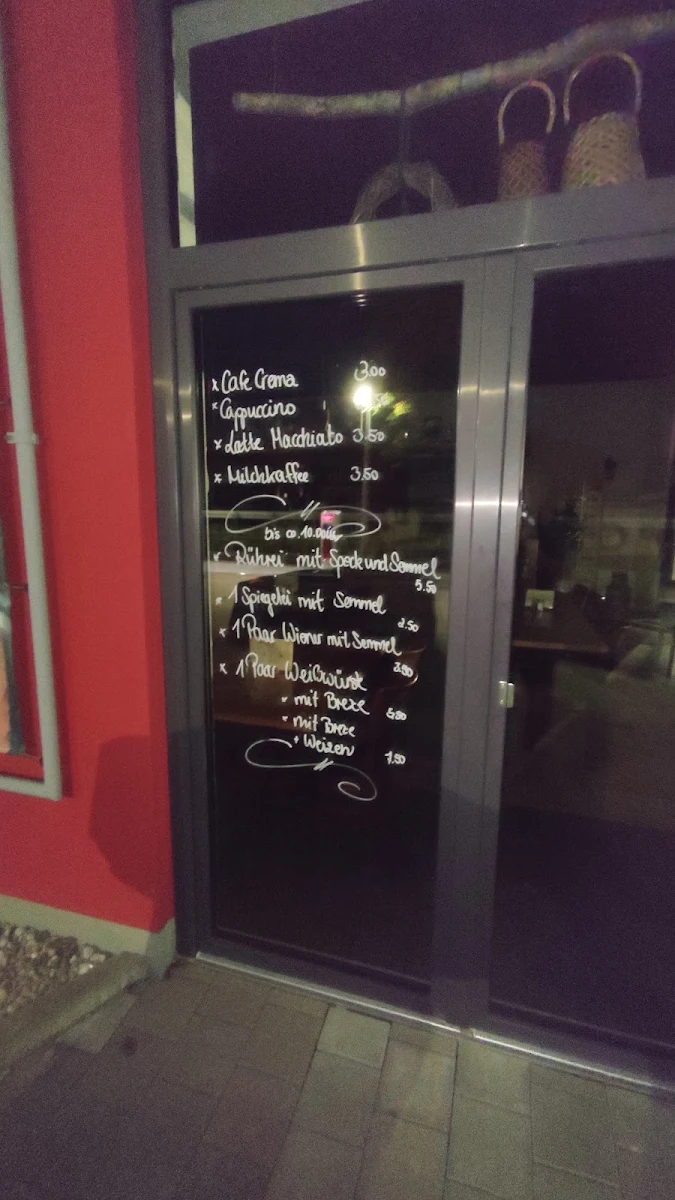 x Cafe Crema 3.00
x Cappuccino
x Latte Macchiato 3.50
x Milchkaffee 3.50
bis ca. 10.00 Uhr
x Rührei mit Speck und Semmel
5.50
x 1 Spiegelei mit Semmel
2.50
x 1 Paar Wiener mit Semmel
x 1 Paar Weißwürste
x mit Breze
x mit Breze
+ Weizen
7.50